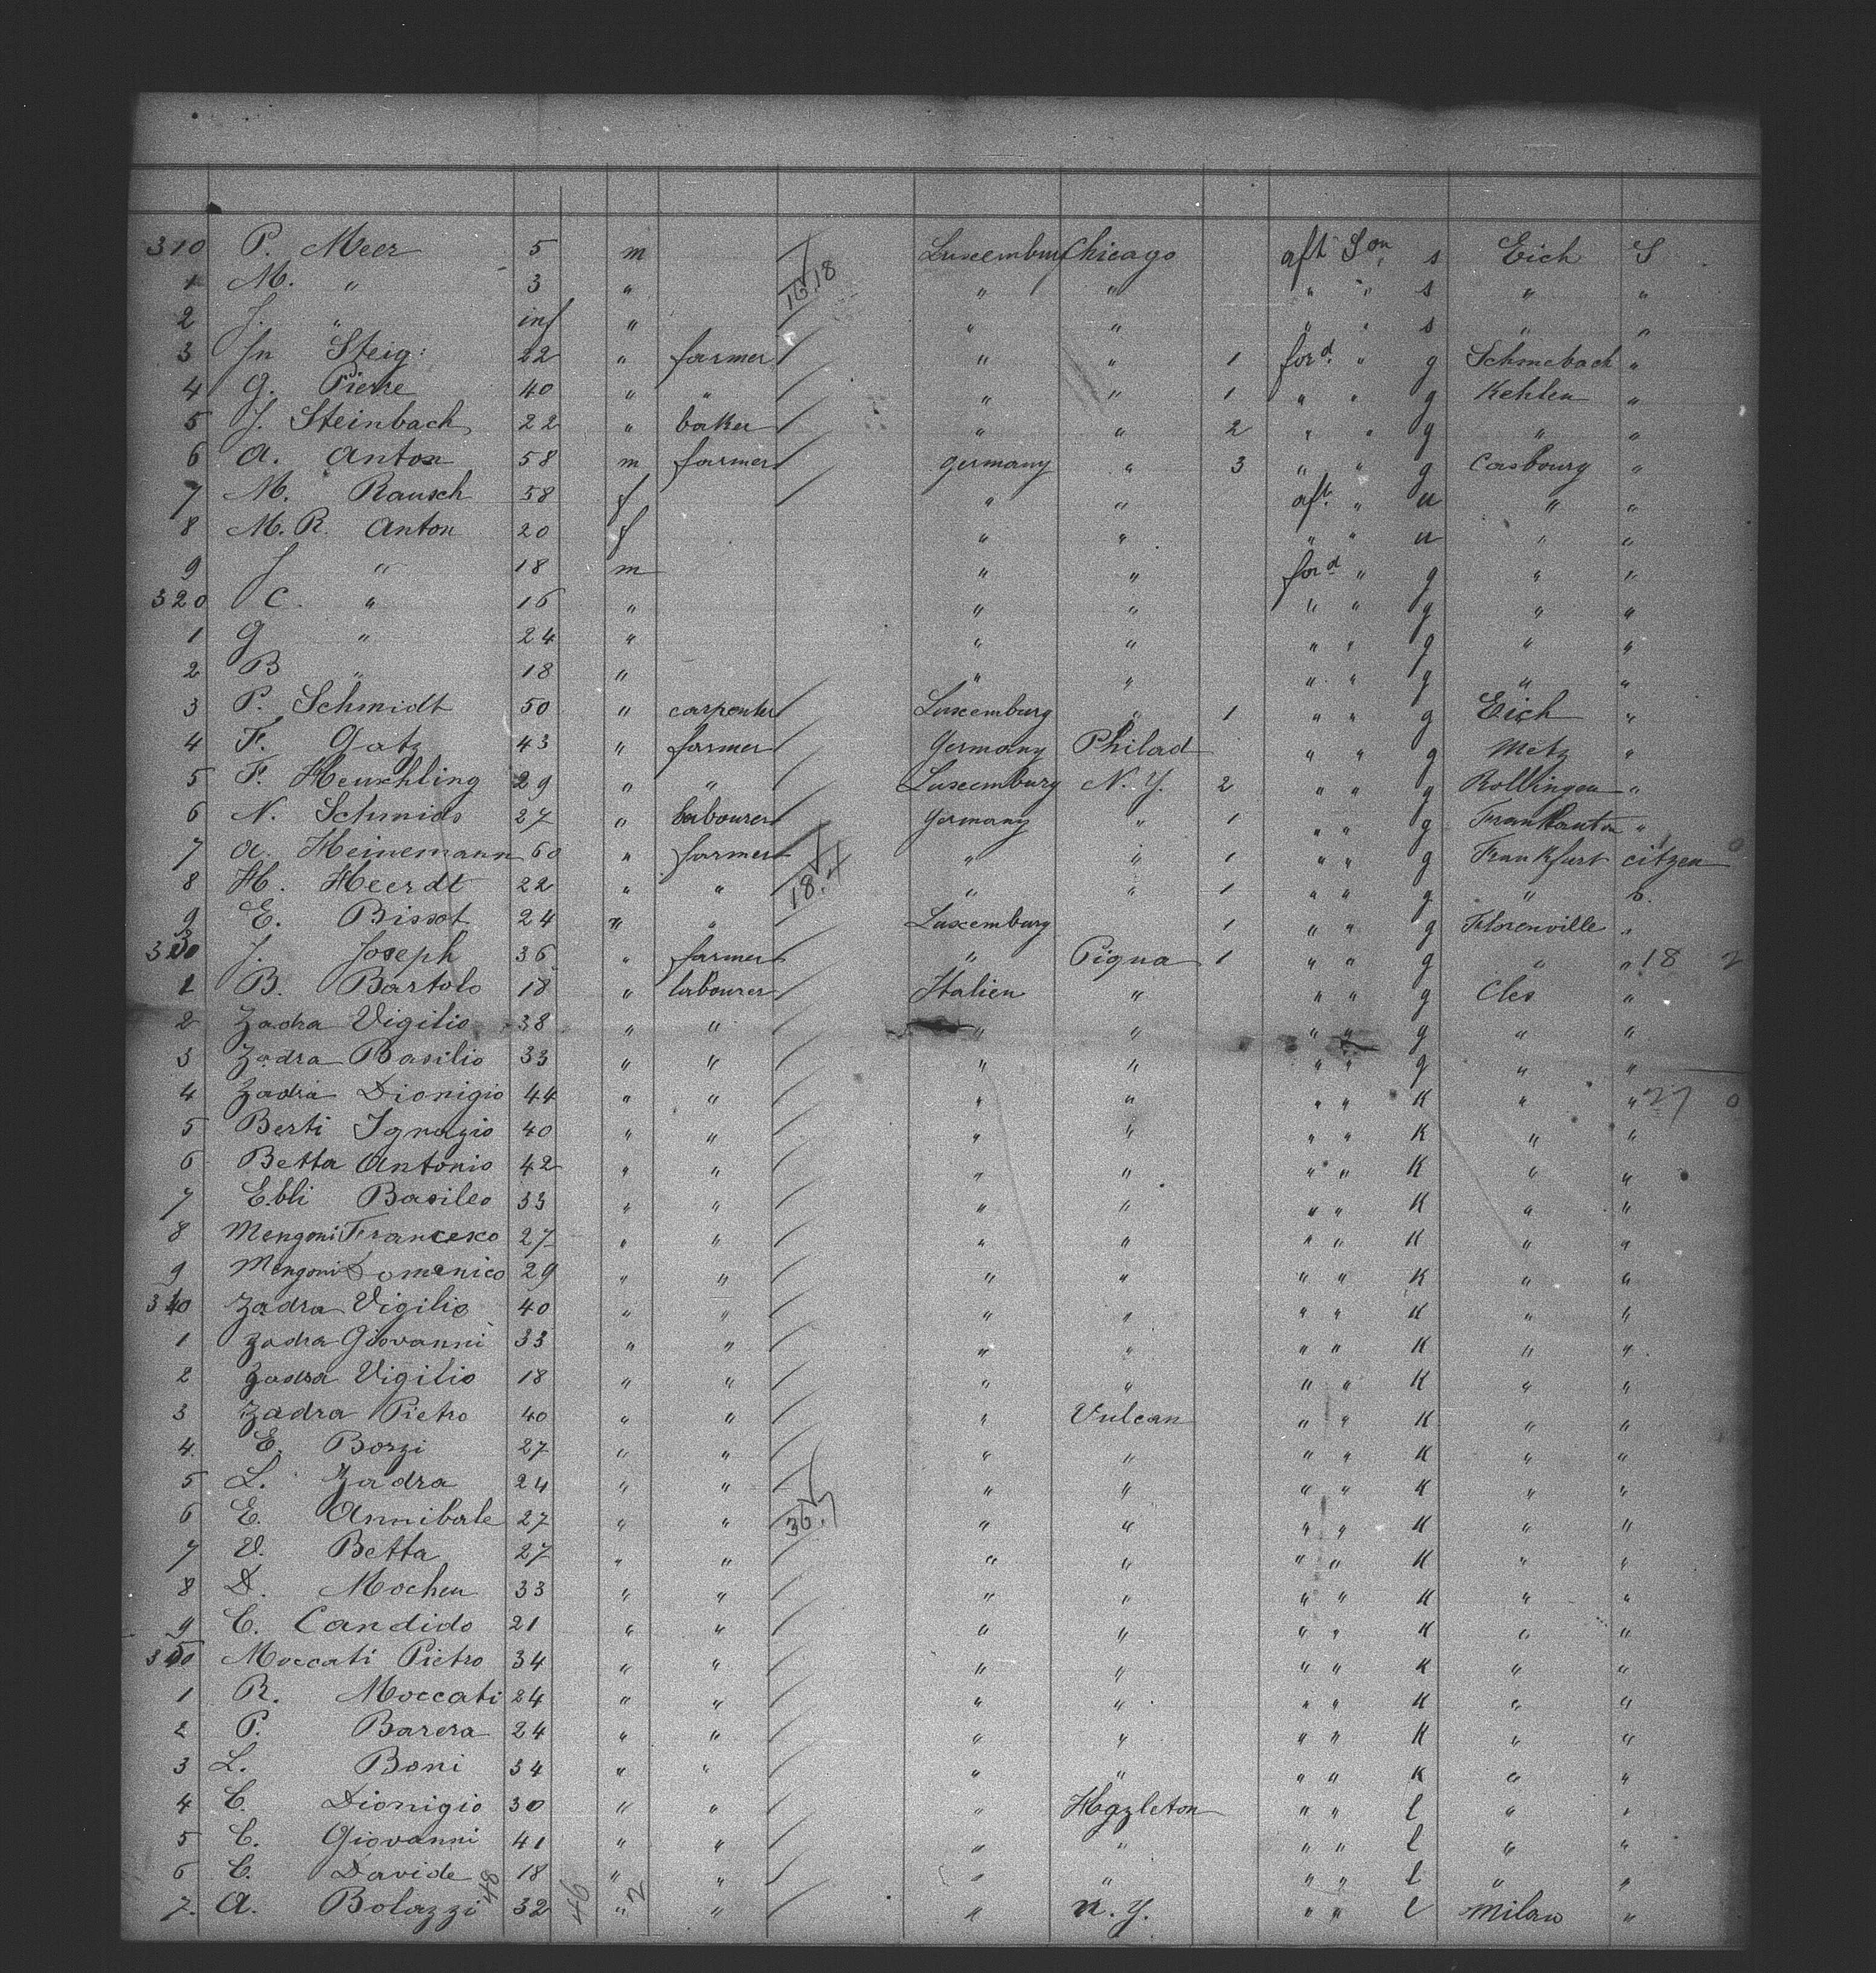 310 P. Meer 5 m Luxemburg Chicago aft Son s Eich S
1 M. " 3 " " " " " s " "
2 J. " inf " " " " " s " "
3 Jn Steig: 22 " farmer " " 1 ford. " g Schmebach "
4 G. Pierre 40 " " " " 1 " " g Kehlen "
5 J. Steinbach 22 " baker " " 2 " " g " "
6 A. Anton 58 m farmer Germany " 3 " " g Casbourg "
7 M. Rausch 58 f " " aft. " u " "
8 M. R. Anton 20 f " " " " u " "
9 J " 18 m " " ford " g " "
320 C. " 16 " " " " " g " "
1 G " 24 " " " " " g " "
2 B " 18 " " " " " g " "
3 P. Schmidt 50 " carpenter Luxemburg " 1 " " g Eich "
4 F. Gatz 43 " farmer Germany Philad " " g Metz "
5 F. Heuschling 29 " " Luxemburg N. Y. 2 " " g Rollingen "
6 N. Schmids 27 " labourer Germany " 1 " " g "
7 A. Heinemann 60 " farmer " " 1 " " g Frankfurt citzen 0
8 H. Heerdt 22 " " " " 1 " " g " s.
9 E. Bissot 24 " " Luxemburg 1 " " g Florenville "
330 J. Joseph 36 " farmer " Piqua 1 " " g " " 18 2
1 B. Bartolo 18 " labourer Italien " " " g Cles "
2 Zadra Vigilio 38 " " " " " " g " "
3 Zadra Basilio 33 " " " " " " g " "
4 Zadra Dionigio 44 " " " " " " K " " 27 0
5 Berti Ignazio 40 " " " " " " K " "
6 Betta Antonio 42 " " " " " " K " "
7 Ebli Basileo 33 " " " " " " K " "
8 Mengoni Francesco 27 " " " " " " K " "
9 Mengoni Domenico 29 " " " " " " K " "
340 Zadra Vigilio 40 " " " " " " K " "
1 Zadra Giovanni 33 " " " " " " K " "
2 Zadra Vigilio 18 " " " " " " K " "
3 Zadra Pietro 40 " " " Vulcan " " K " "
4. E. Borzi 27 " " " " " " K " "
5 L. Zadra 24 " " " " " " K " "
6 E. Annibale 27 " " " " " " K " "
7 V. Betta 27 " " " " " " K " "
8 D. Mochen 33 " " " " " " K " "
9 C. Candido 21 " " " " " " K " "
350 Moccati Pietro 34 " " " " " " K " "
1 R. Moccati 24 " " " " " " K " "
2 P. Barera 24 " " " " " " K " "
3 L. Boni 34 " " " " " " K " "
4 C. Dionigio 30 " " " Hazleton " " l " "
5 C. Giovanni 41 " " " " " " l " "
6 C. Davide 18 " " " " " " l " "
7. A. Bolazzi 32 " " " N. Y. " " l Milan "
48 46 2